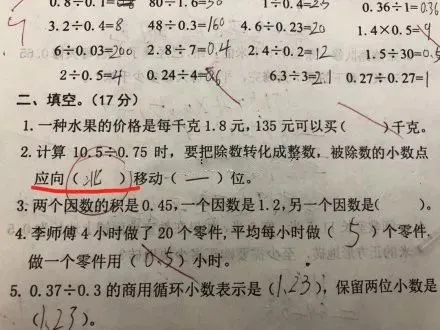 0.8÷0.1= 80÷1.6=50 0.36×1=0.36
3.2÷0.4=8 48÷0.3=160 4.6÷0.23=20 1.4×0.5=
6÷0.03=200 2.8÷7=0.4 2.4÷0.2=12 1.5÷30=0.5
2÷0.5=4 0.24÷4= 6.3÷3=2.1 0.27÷0.27=1
二、填空。(17分)
1.一种水果的价格是每千克1.8元,135元可以买( )千克。
2.计算10.5÷0.75时,要把除数转化成整数,被除数的小数点
应向(北)移动(一)位。
3.两个因数的积是0.45,一个因数是1.2,另一个因数是( )。
4.李师傅4小时做了20个零件,平均每小时做(5)个零件,
做一个零件用(0.5)小时。
5.0.37÷0.3的商用循环小数表示是(1.23),保留两位小数是
(1.23)。